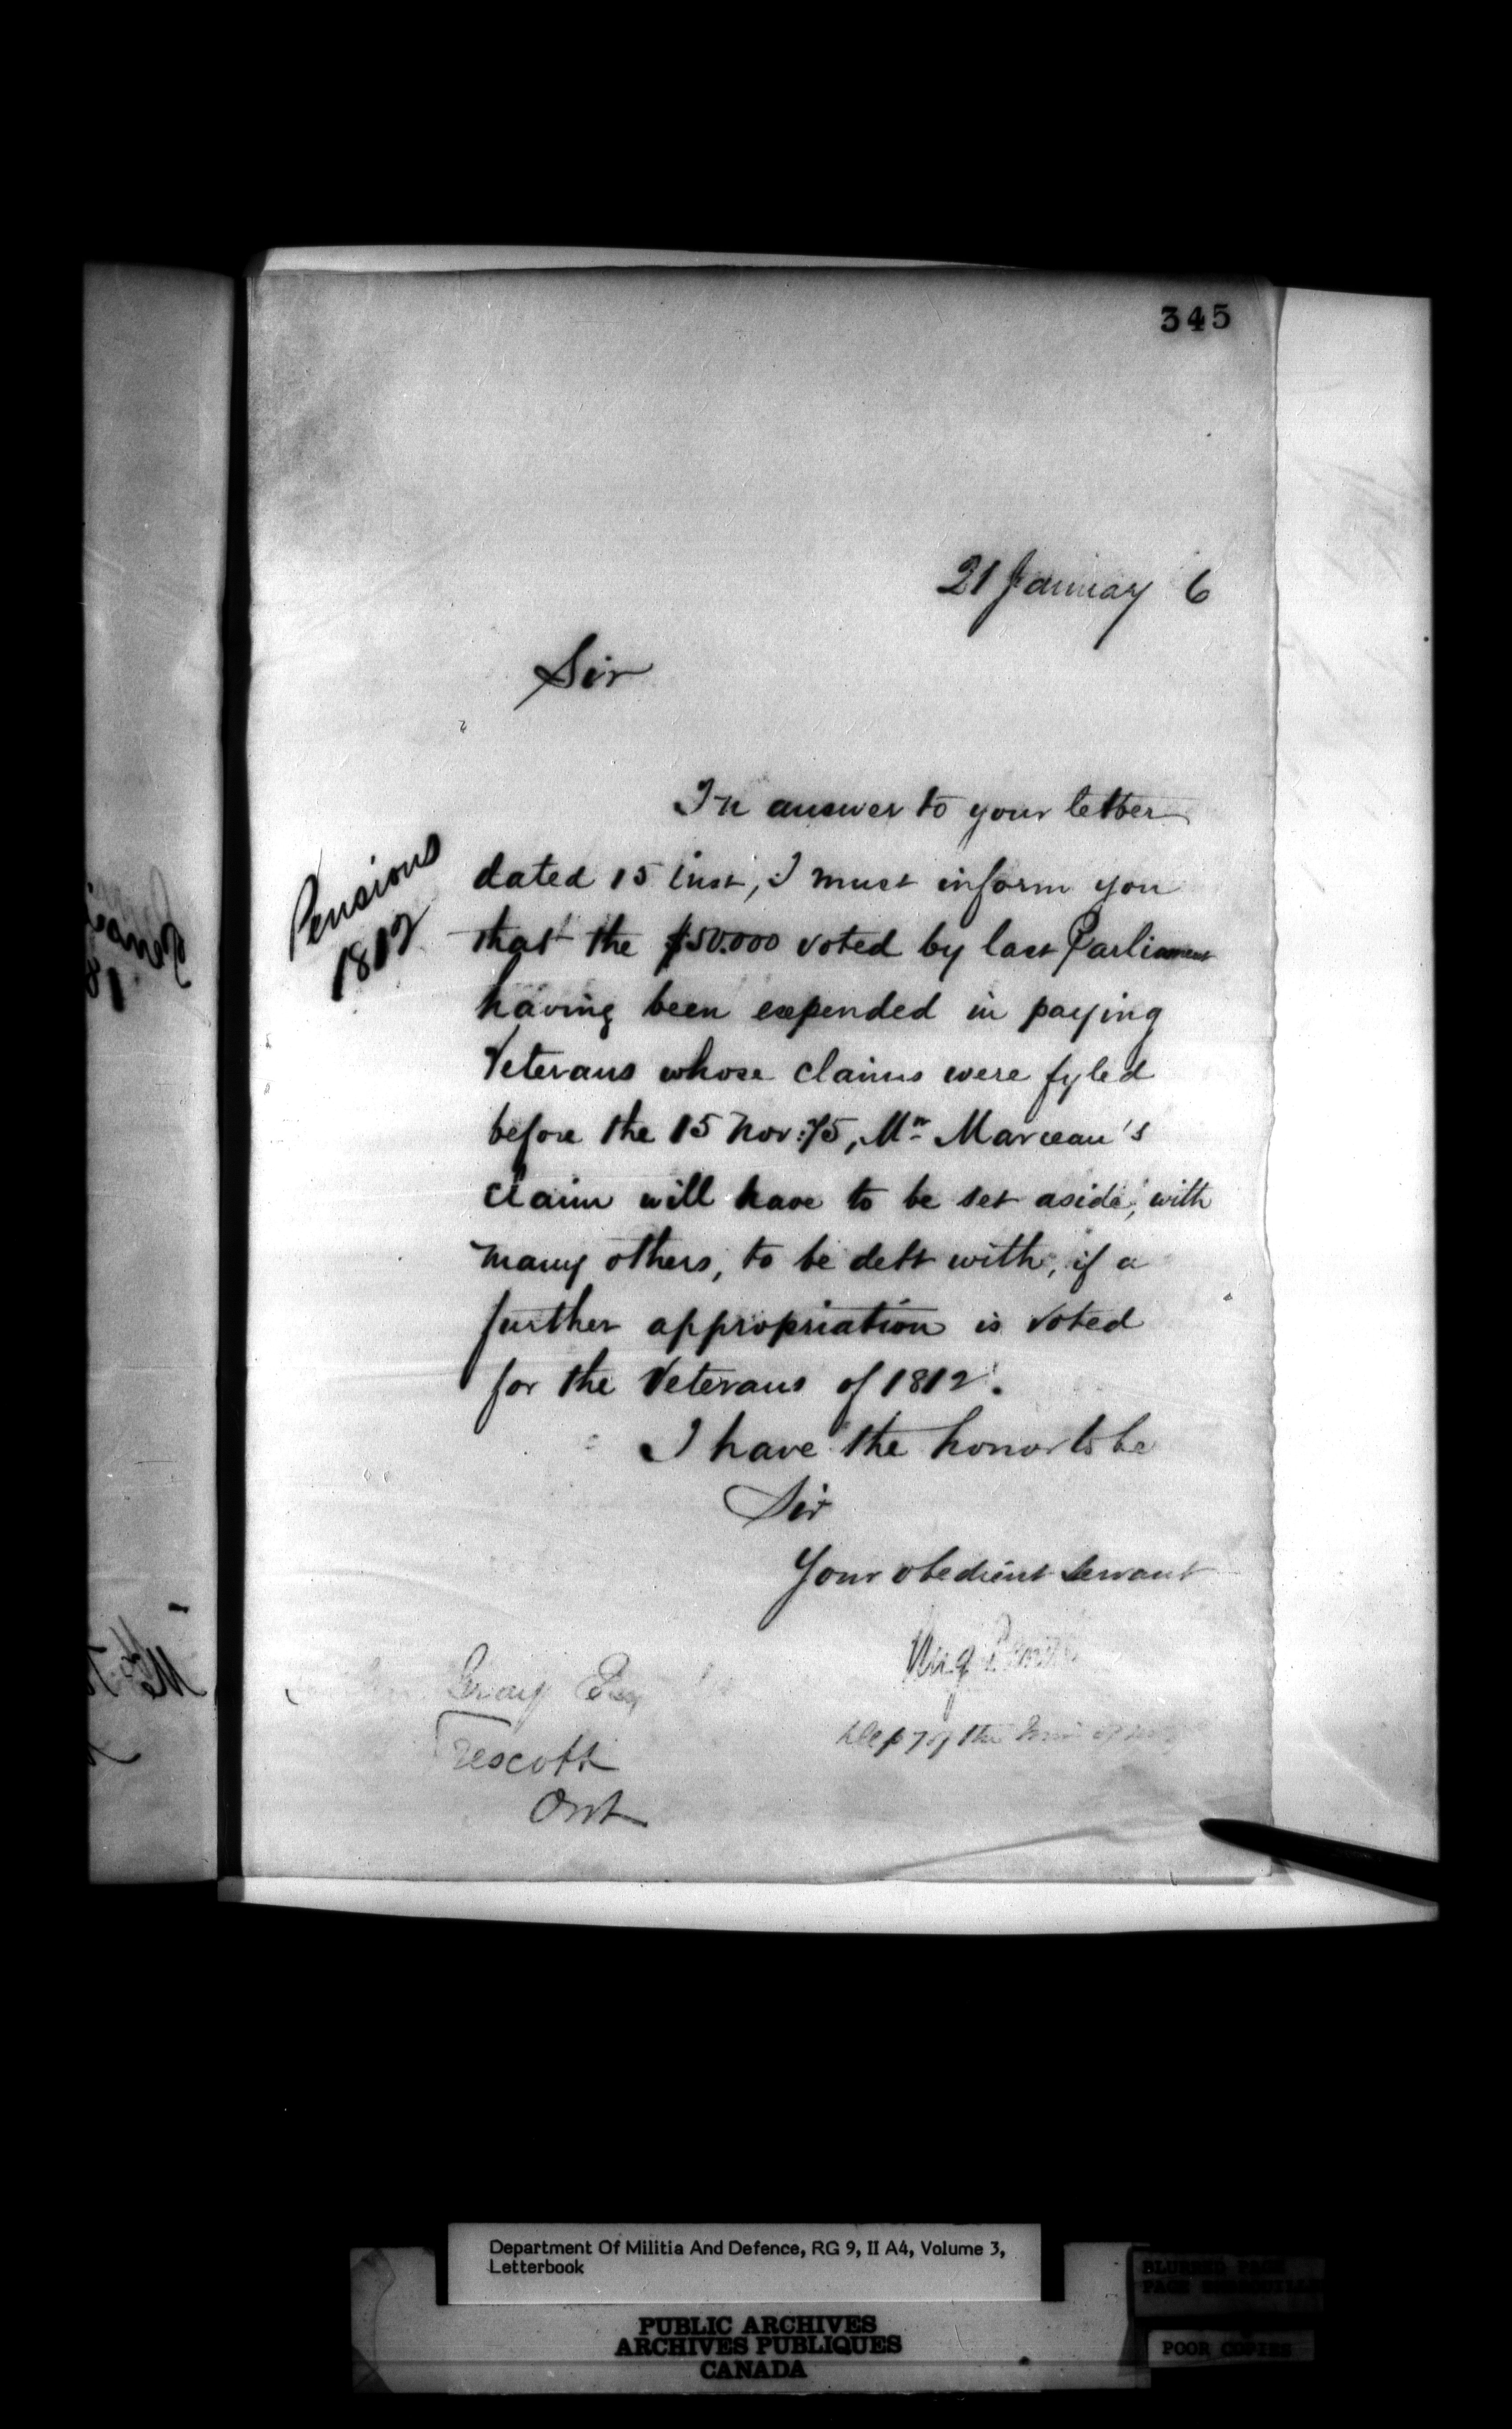 345
21 January 6
Sir
Pensions
1812
In answer to your letter
dated 15 inst, I must inform you
that the $50.000 voted by last Parliament
having been expended in paying
Veterans whose claims were fyled
before the 15 Nov: 75, Mr Marceau's
claim will have to be set aside, with
many others, to be delt with, if a
further appropriation is voted
for the Veterans of 1812.
I have the honor to be
Sir
Your obedient Servant
Gray Esq
Prescott
Ont
of the
Department Of Militia And Defence, RG 9, II A4, Volume 3,
Letterbook
PUBLIC ARCHIVES
ARCHIVES PUBLIQUES
CANADA
BLURRED PAGE
POOR COPIES